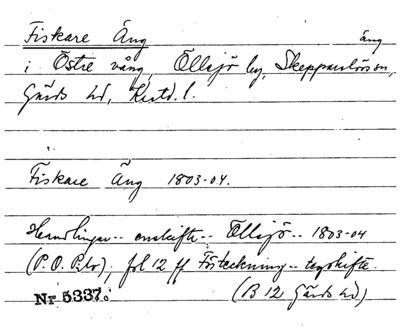 Fiskare Äng
äng
i Östre vång, Ollsjö by, Skepparslövs sn,
Gärds hd, Krstd. l.
Fiskare Äng 1803-04.
Handlingar .. enskifte .. Ollsjö .. 1803-04
(P. O. ), fol 12 ff Förteckning .. tegskifte.
Nr 5337. (B 12 Gärds hd)